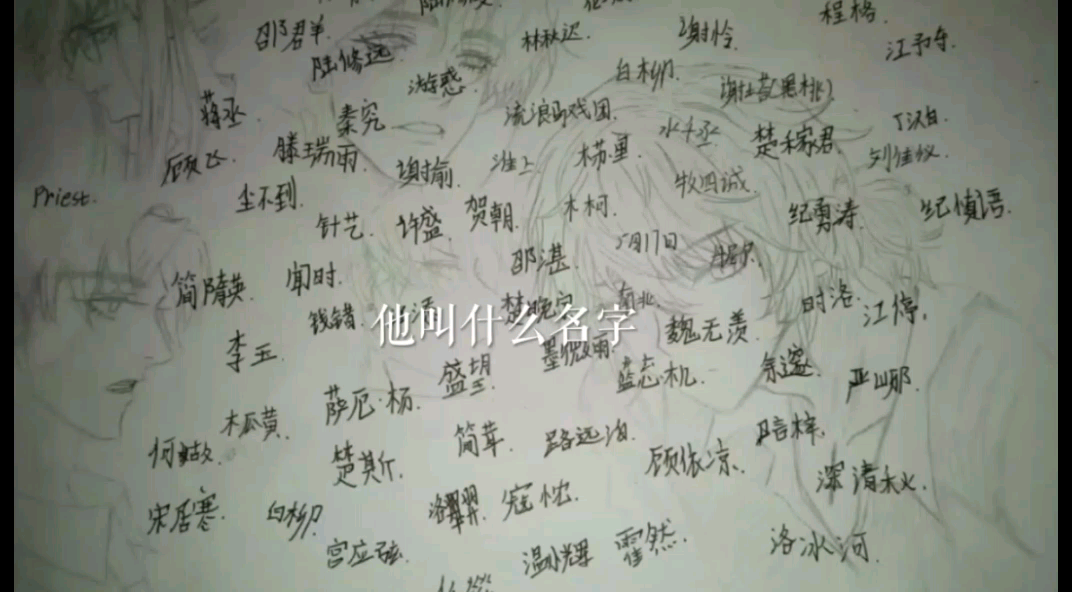 程格.
邵君羊.
林秋迟.
谢怜.
江予夺.
陆修远.
游惑.
白柳.
谢塔(黑桃)
蒋丞.
秦究.
流浪马戏团.
水千丞.
楚稼君.
丁汉白.
顾飞.
滕瑞雨.
谢俞.
淮上
木苏里.
牧四诚.
刘佳仪.
Priest.
尘不到.
针艺.
许盛.
贺朝.
木柯.
纪勇涛.
纪慎语.
邵湛.
5月17日
简隋英.
闻时.
钱错.
楚晚宁.
南北.
魏无羡.
时洛.
江停.
他叫什么名字
李玉.
盛望.
墨微雨.
蓝忘机.
余邃.
严峫.
木瓜黄.
萨厄·杨.
何故.
楚斯.
简茸.
路远洵.
顾依凉.
陪梓.
宋居寒.
白柳.
洛羿.
寇忱.
深清秋.
宫应弦.
温小辉.
霍然.
洛冰河.